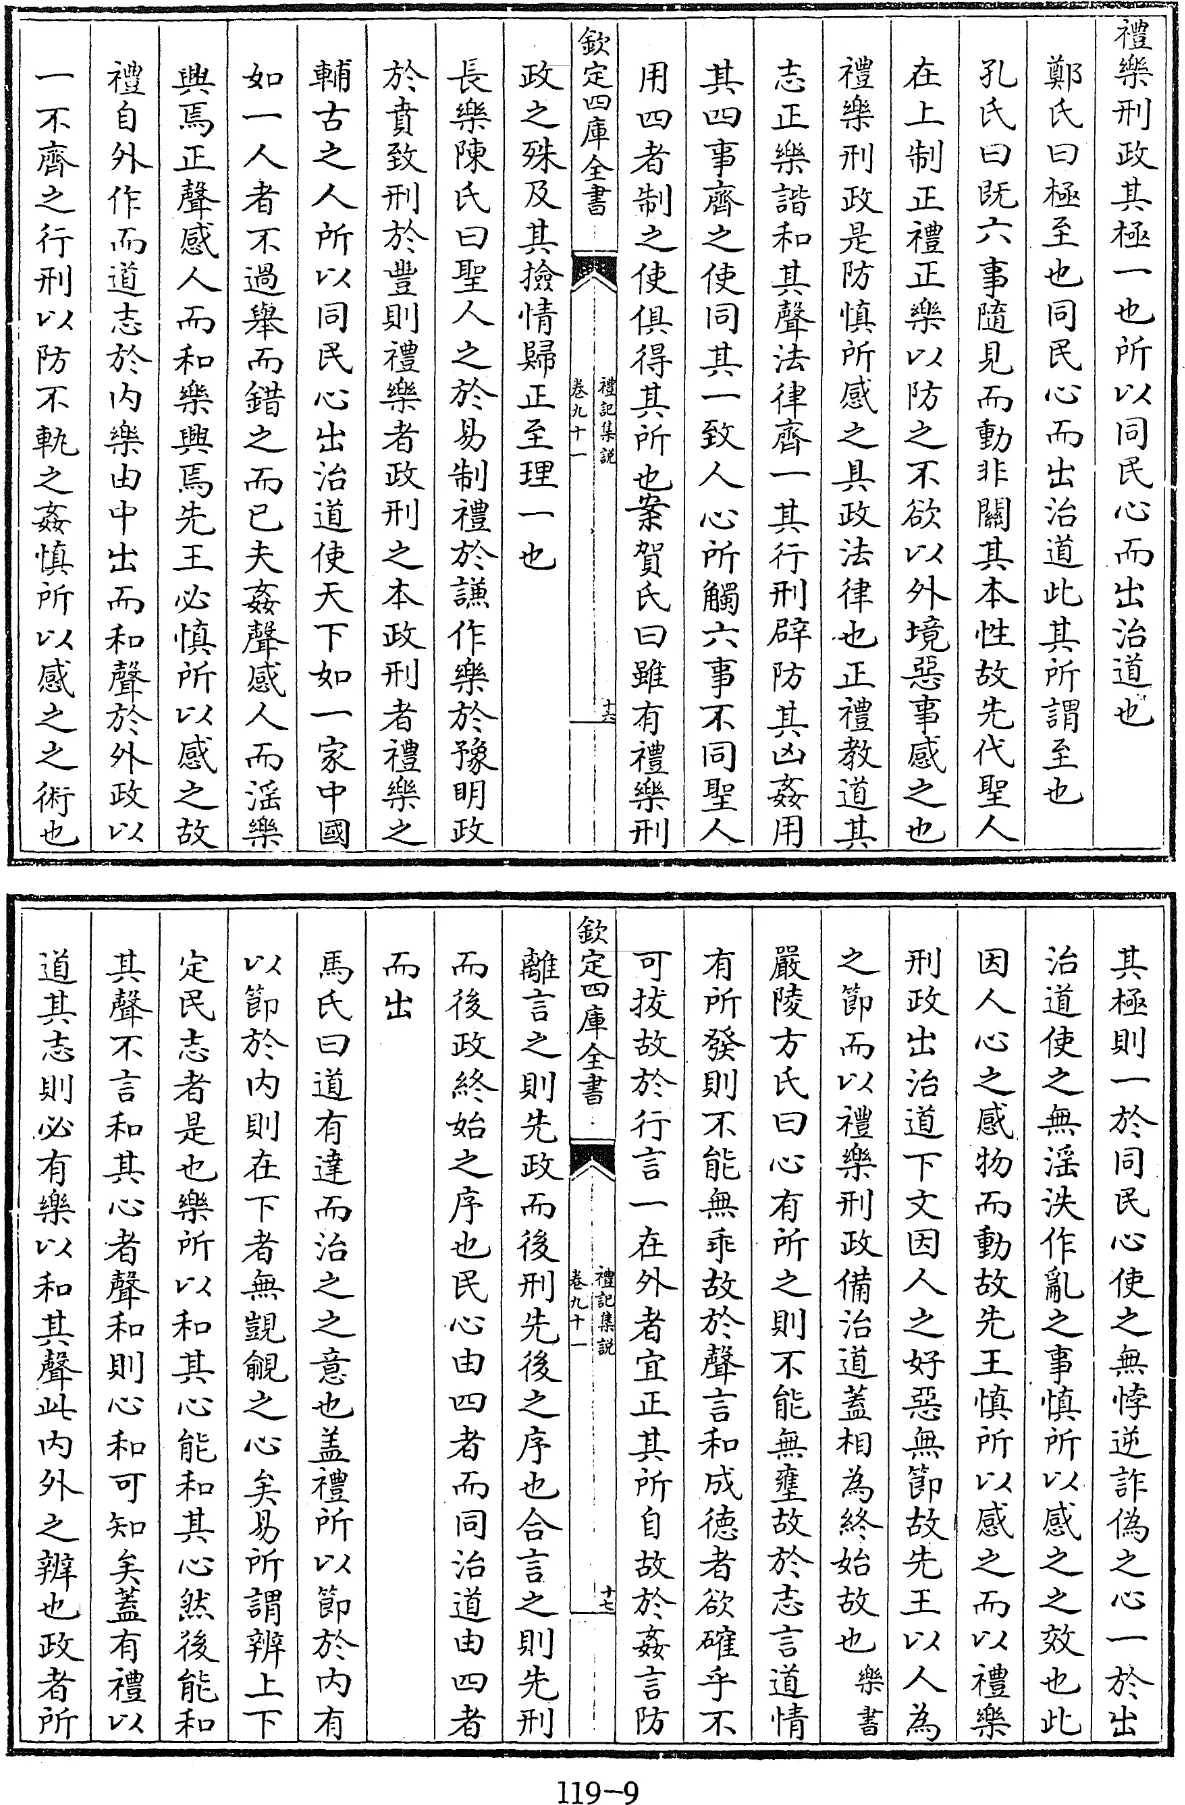 禮樂刑政其極一也所以同民心而出治道也
鄭氏曰極至也同民心而出治道此其所謂至也
孔氏曰既六事隨見而動非關其本性故先代聖人
在上制正禮正樂以防之不欲以外境惡事感之也
禮樂刑政是防慎所感之具政法律也正禮教道其
志正樂諧和其聲法律齊一其行刑辟防其凶姦用
其四事齊之使同其一致人心所觸六事不同聖人
用四者制之使俱得其所也案賀氏曰雖有禮樂刑
欽定四庫全書
禮記集說
卷九十一
十六
政之殊及其撿情歸正至理一也
長樂陳氏曰聖人之於易制禮於謙作樂於豫明政
於賁致刑於豐則禮樂者政刑之本政刑者禮樂之
輔古之人所以同民心出治道使天下如一家中國
如一人者不過舉而錯之而已夫姦聲感人而淫樂
興焉正聲感人而和樂興焉先王必慎所以感之故
禮自外作而道志於内樂由中出而和聲於外政以
一不齊之行刑以防不軌之姦慎所以感之之術也
其極則一於同民心使之無悖逆詐偽之心一於出
治道使之無淫泆作亂之事慎所以感之之效也此
因人心之感物而動故先王慎所以感之而以禮樂
刑政出治道下文因人之好惡無節故先王以人為
之節而以禮樂刑政備治道蓋相為終始故也 樂書
嚴陵方氏曰心有所之則不能無壅故於志言道情
有所發則不能無乖故於聲言和成德者欲確乎不
可拔故於行言一在外者宜正其所自故於姦言防
欽定四庫全書
禮記集說
卷九十一
十七
離言之則先政而後刑先後之序也合言之則先刑
而後政終始之序也民心由四者而同治道由四者
而出
馬氏曰道有達而治之之意也盖禮所以節於内有
以節於内則在下者無覬覦之心矣易所謂辨上下
定民志者是也樂所以和其心能和其心然後能和
其聲不言和其心者聲和則心和可知矣蓋有禮以
道其志則必有樂以和其聲此内外之辨也政者所
119-9